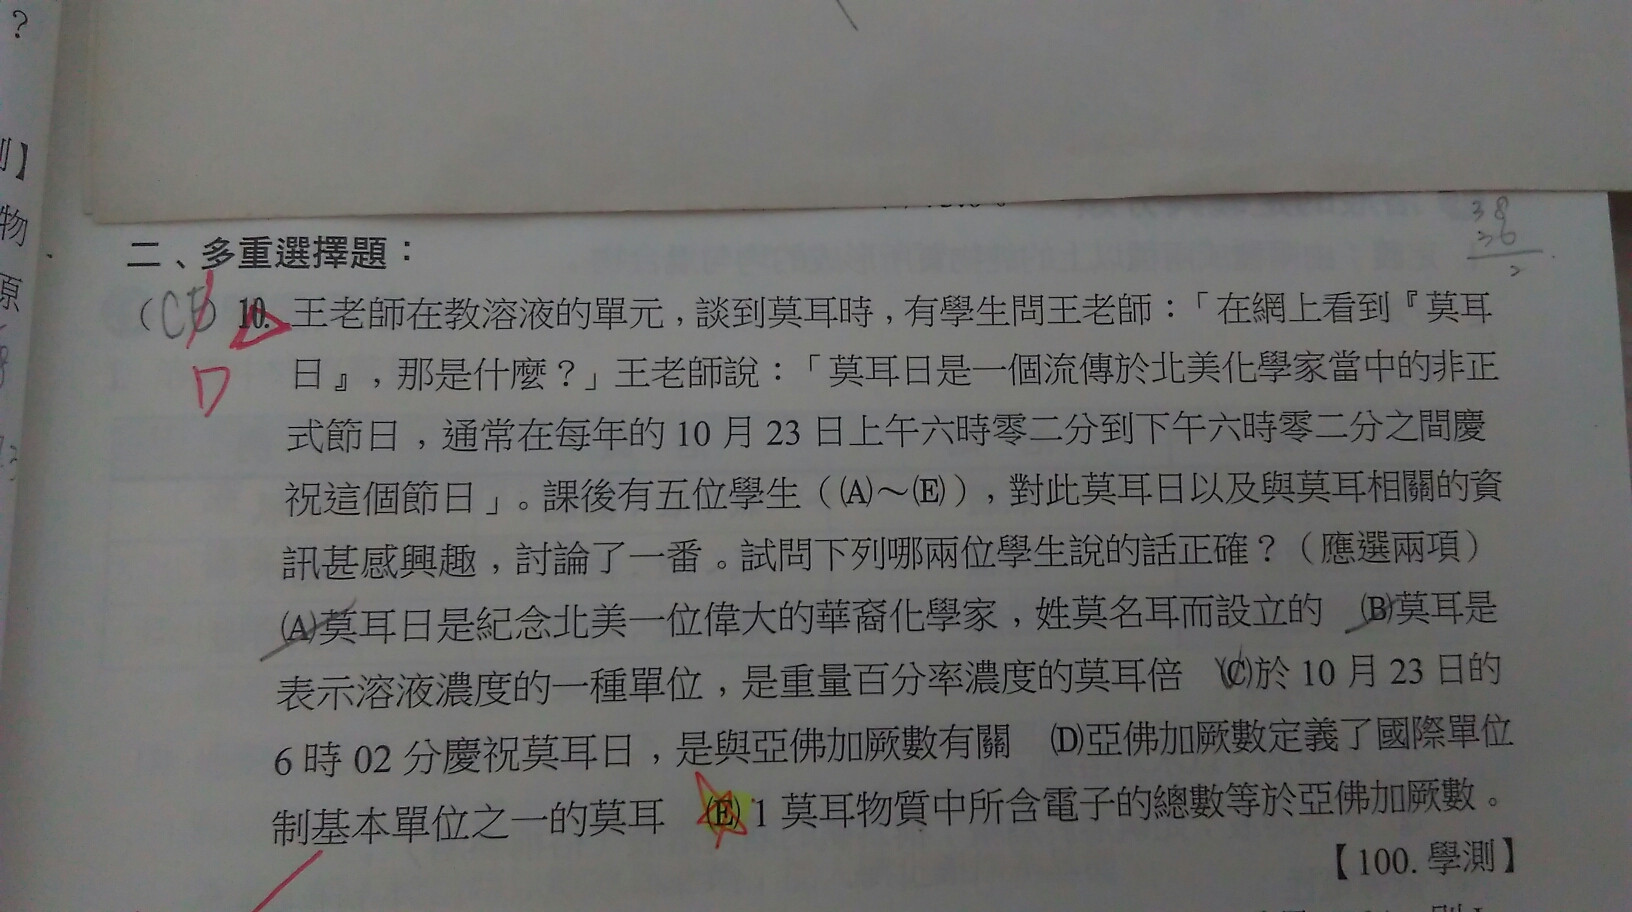 ?
】
物
原
38
36
2
二、多重選擇題：
(CE) 10. 王老師在教溶液的單元，談到莫耳時，有學生問王老師：「在網上看到『莫耳
D 日』，那是什麼？」王老師說：「莫耳日是一個流傳於北美化學家當中的非正
式節日，通常在每年的 10 月 23 日上午六時零二分到下午六時零二分之間慶
祝這個節日」。課後有五位學生（(A)～(E)），對此莫耳日以及與莫耳相關的資
訊甚感興趣，討論了一番。試問下列哪兩位學生說的話正確？（應選兩項）
(A)莫耳日是紀念北美一位偉大的華裔化學家，姓莫名耳而設立的 (B)莫耳是
表示溶液濃度的一種單位，是重量百分率濃度的莫耳倍 (C)於 10 月 23 日的
6 時 02 分慶祝莫耳日，是與亞佛加厥數有關 (D)亞佛加厥數定義了國際單位
制基本單位之一的莫耳 (E) 1 莫耳物質中所含電子的總數等於亞佛加厥數。
【100. 學測】